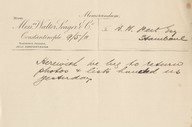 Memorandum.
Messrs Walter Seager & Co.
Constantinople 9/5/11
To A. W. Mert Esq
Stamboul
Herewith we beg to return
photos & lists handed us
yesterday